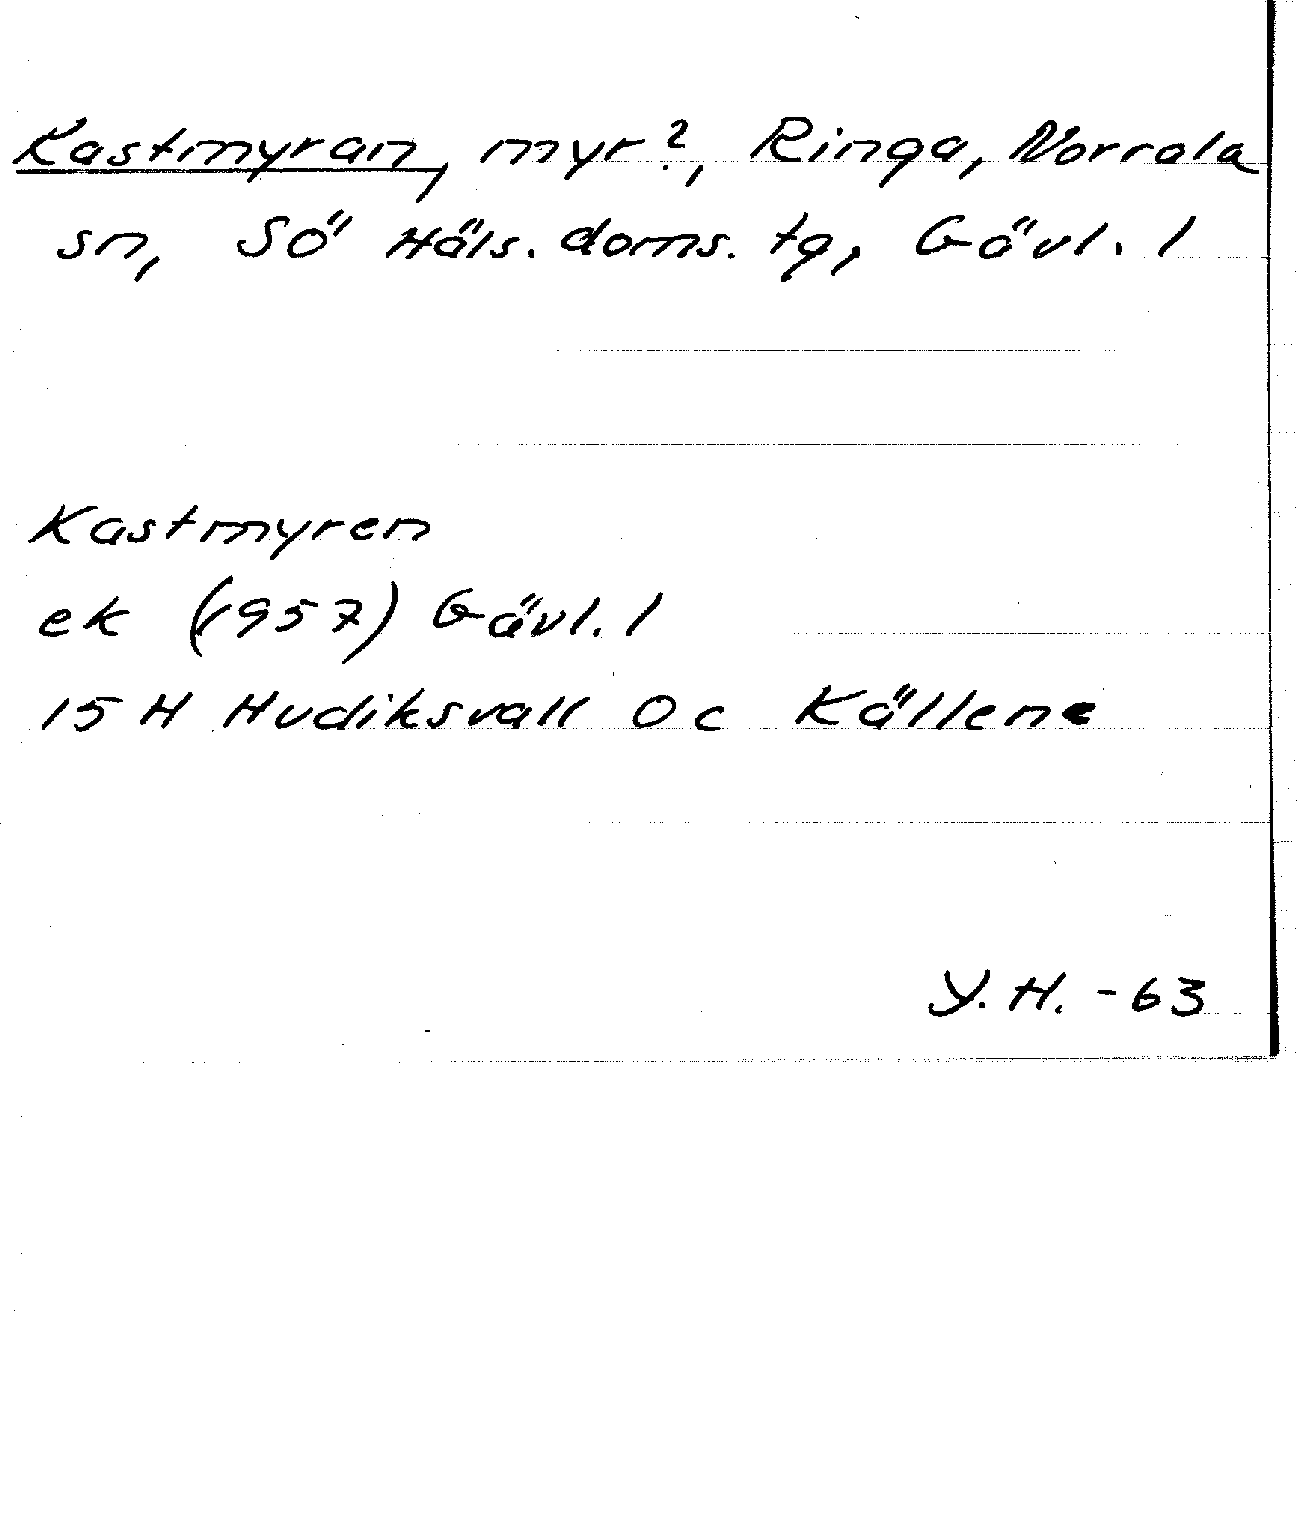 Kastmyran, myr?, Ringa, Norrala
sn, Sö Häls. doms. tg, Gävl. l
Kastmyren
ek (1957) Gävl. l
15 H Hudiksvall 0 c Källene
Y. H. - 63